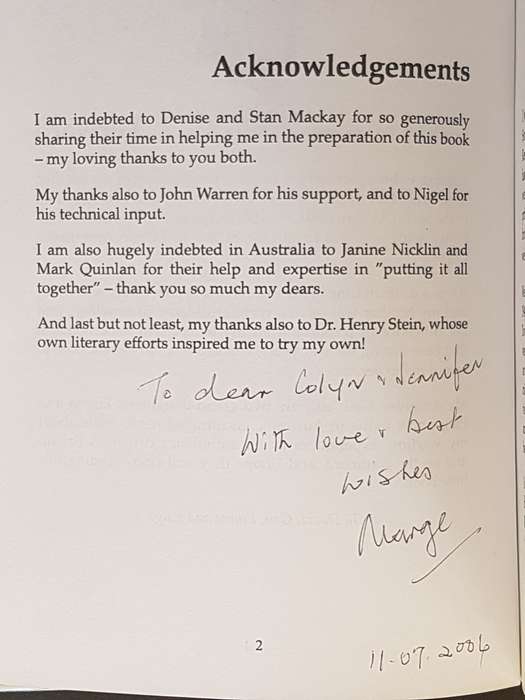 Acknowledgements
I am indebted to Denise and Stan Mackay for so generously
sharing their time in helping me in the preparation of this book
– my loving thanks to you both.
My thanks also to John Warren for his support, and to Nigel for
his technical input.
I am also hugely indebted in Australia to Janine Nicklin and
Mark Quinlan for their help and expertise in "putting it all
together" – thank you so much my dears.
And last but not least, my thanks also to Dr. Henry Stein, whose
own literary efforts inspired me to try my own!
To dear Colyn & Jennifer
With love & best
wishes
Marge
2
11-07.2006